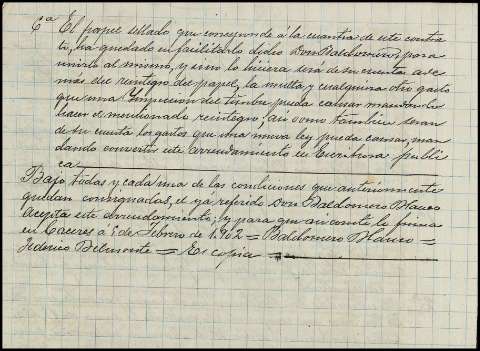 6ª El papel sellado que corresponde á la cuantia de este contra
to, ha quedado en facilitarlo dicho Don Baldomero, para
unirlo al mismo, y si no lo hiciera será de su cuenta ade
más del reintegro del papel, la multa y cualquiera otro gasto
que una Ynspeccion del timbre pueda causar mandandole
hacer el mencionado reintegro; asi como tambien seran
de su cuenta los gastos que una nueva ley pueda causar, man
dando convertir este arrendamiento en Escritura publi
ca
Bajo todas y cada una de las condiciones que anteriormente
quedan consignadas, el ya referido Don Baldomero Blanco
acepta este arrendamiento; y para que asi conste lo firma
en Caceres á 5 de Febrero de 1.902 = Baldomero Blanco =
Federico Belmonte = Es copia =